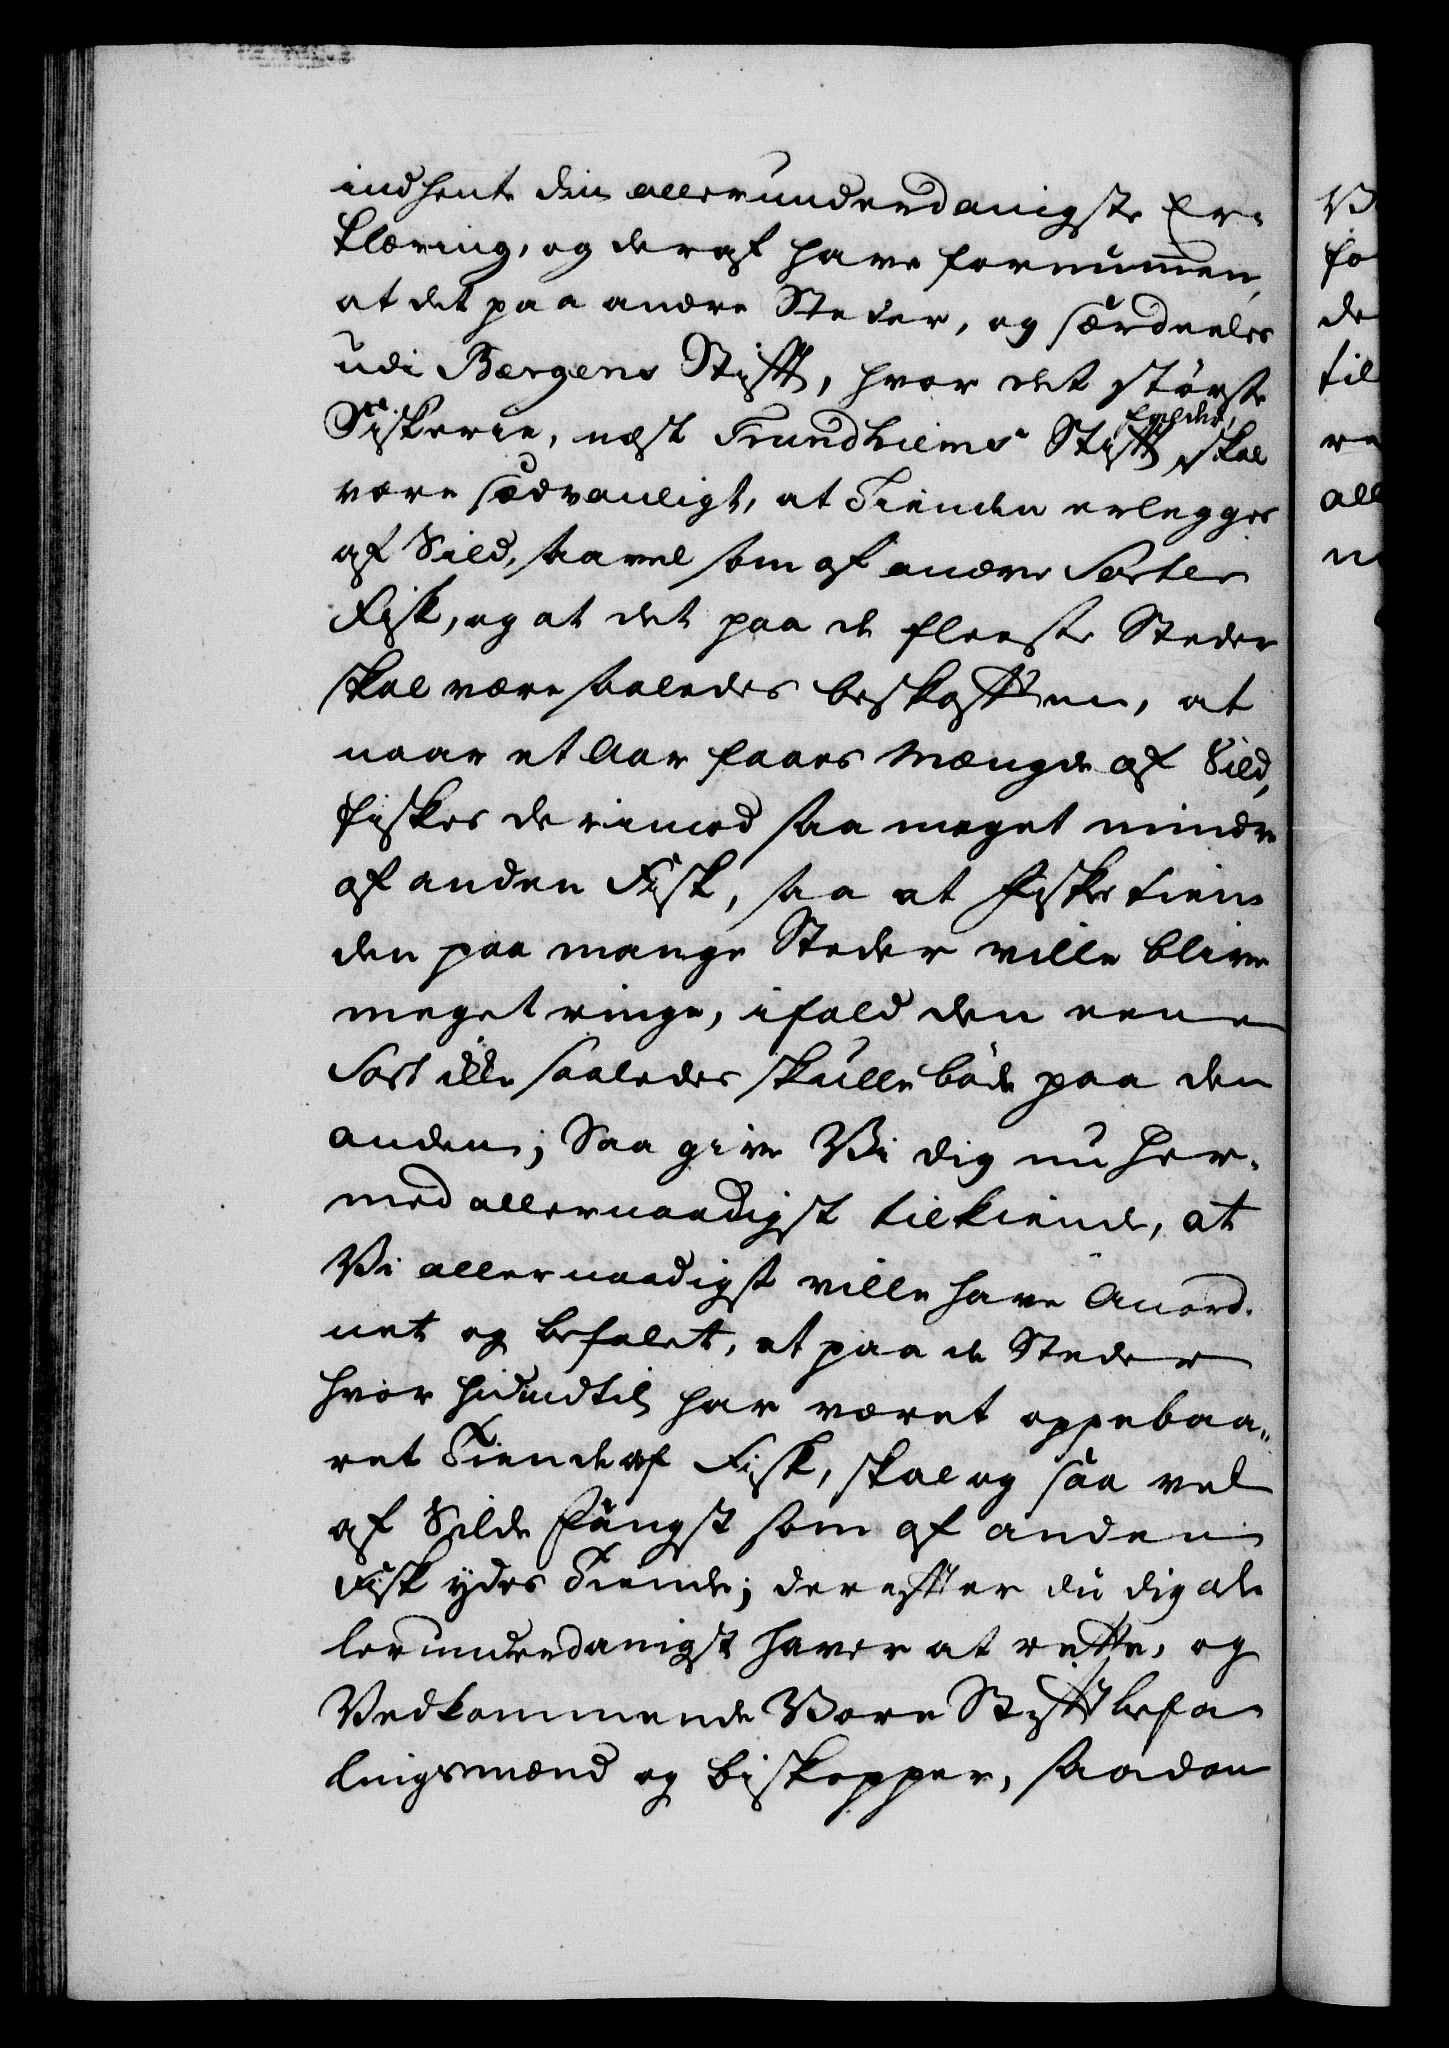 indhente din allerunderdanigste Er-
klæring, og deraf have fornummen,
at det paa andre Steder, og særdeeles
udi Bergens Stifft, hvor det største
Fiskerie, næst Trundhiems Stifft falder, skal
være sædvanligt, at Tienden erlegges
af Sild, saavel som af andre Sorter
Fisk, og at det paa de fleeste Steder
skal være saaledes beskaffen, at
naar et Aar faaes Mængde af Sild,
fiskes derimod saa meget mindre
af anden Fisk, saa at Fiske Tien-
den paa mange Steder ville blive
meget ringe, ifald den eene
Sort ikke saaledes skulle bøde paa den
anden; Saa give Vi dig nu her-
med allernaadigst tilkiende, at
Vi allernaadigst ville have Anord-
net og befalet, at paa de Steder
hvor hidindtil har været oppebaa-
ret Tiende af Fisk, skal og saa vel
af Silde Fangst som af anden
Fisk ydes Tiende; derefter du dig al-
lerunderdanigst haver at rette, og
Vedkommende Vore Stifftbefa-
lingsmænd og Biskopper, saadan
V
fo
de
til
re
all
n